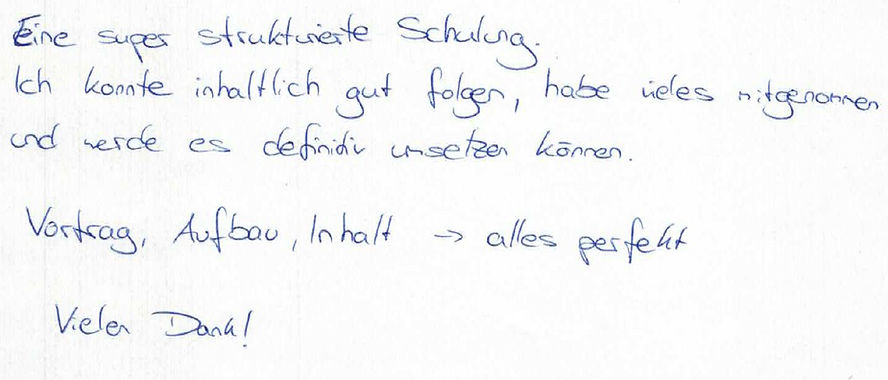 Eine super strukturierte Schulung.
Ich konnte inhaltlich gut folgen, habe vieles mitgenommen
und werde es definitiv umsetzen können.
Vortrag, Aufbau, Inhalt → alles perfekt
Vielen Dank!